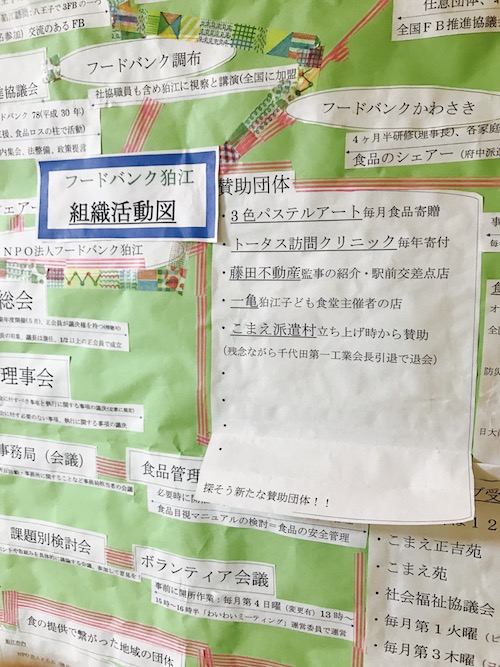 業、訪問：八王子で3FBの一つ
名参加）交流のあるFB
任意団体、
全国FB推進協議
フードバンク調布
社協職員も含め狛江に視察と講演(全国に加盟
フードバンクかわさき
4ヶ月半研修(理事長)、各家庭
食品のシェアー（府中派遣
進協議会
ドバンク 78(平成 30 年)
支援、食品ロスの柱で活動)
内集会、法整備、政策提言
フードバンク狛江
組織活動図
NPO法人フードバンク狛江
総会
理事会
事務局（会議）
賛助団体
・3色パステルアート毎月食品寄贈
・トータス訪問クリニック毎年寄付
・藤田不動産監事の紹介・駅前交差点店
・一亀狛江子ども食堂主催者の店
・こまえ派遣村立ち上げ時から賛助
（残念ながら千代田第一工業会長引退で退会）
・
・
・
・
・
探そう新たな賛助団体！！
食品管理
・必要時に開
・食品目視マニュアルの検討＝食品の安全管理
課題別検討会
ボランティア会議
事前に開所作業：毎月第4日曜（変更有）13時～
15時～16時半「わいわいミーティング」運営委員で運営
食の提供で繋がった地域の団体
・こまえ正吉苑
・こまえ苑
・社会福祉協議会
・毎月第1火曜（ビ
・毎月第3木曜（